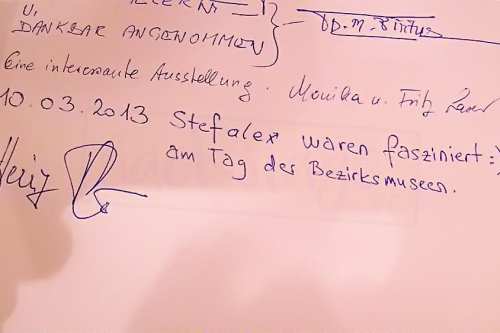 u.
DANKBAR ANGENOMMEN
Eine interessante Ausstellung. Monika u. Fritz
10.03.2013 Stefalex waren fasziniert :)
am Tag der Bezirksmuseen.